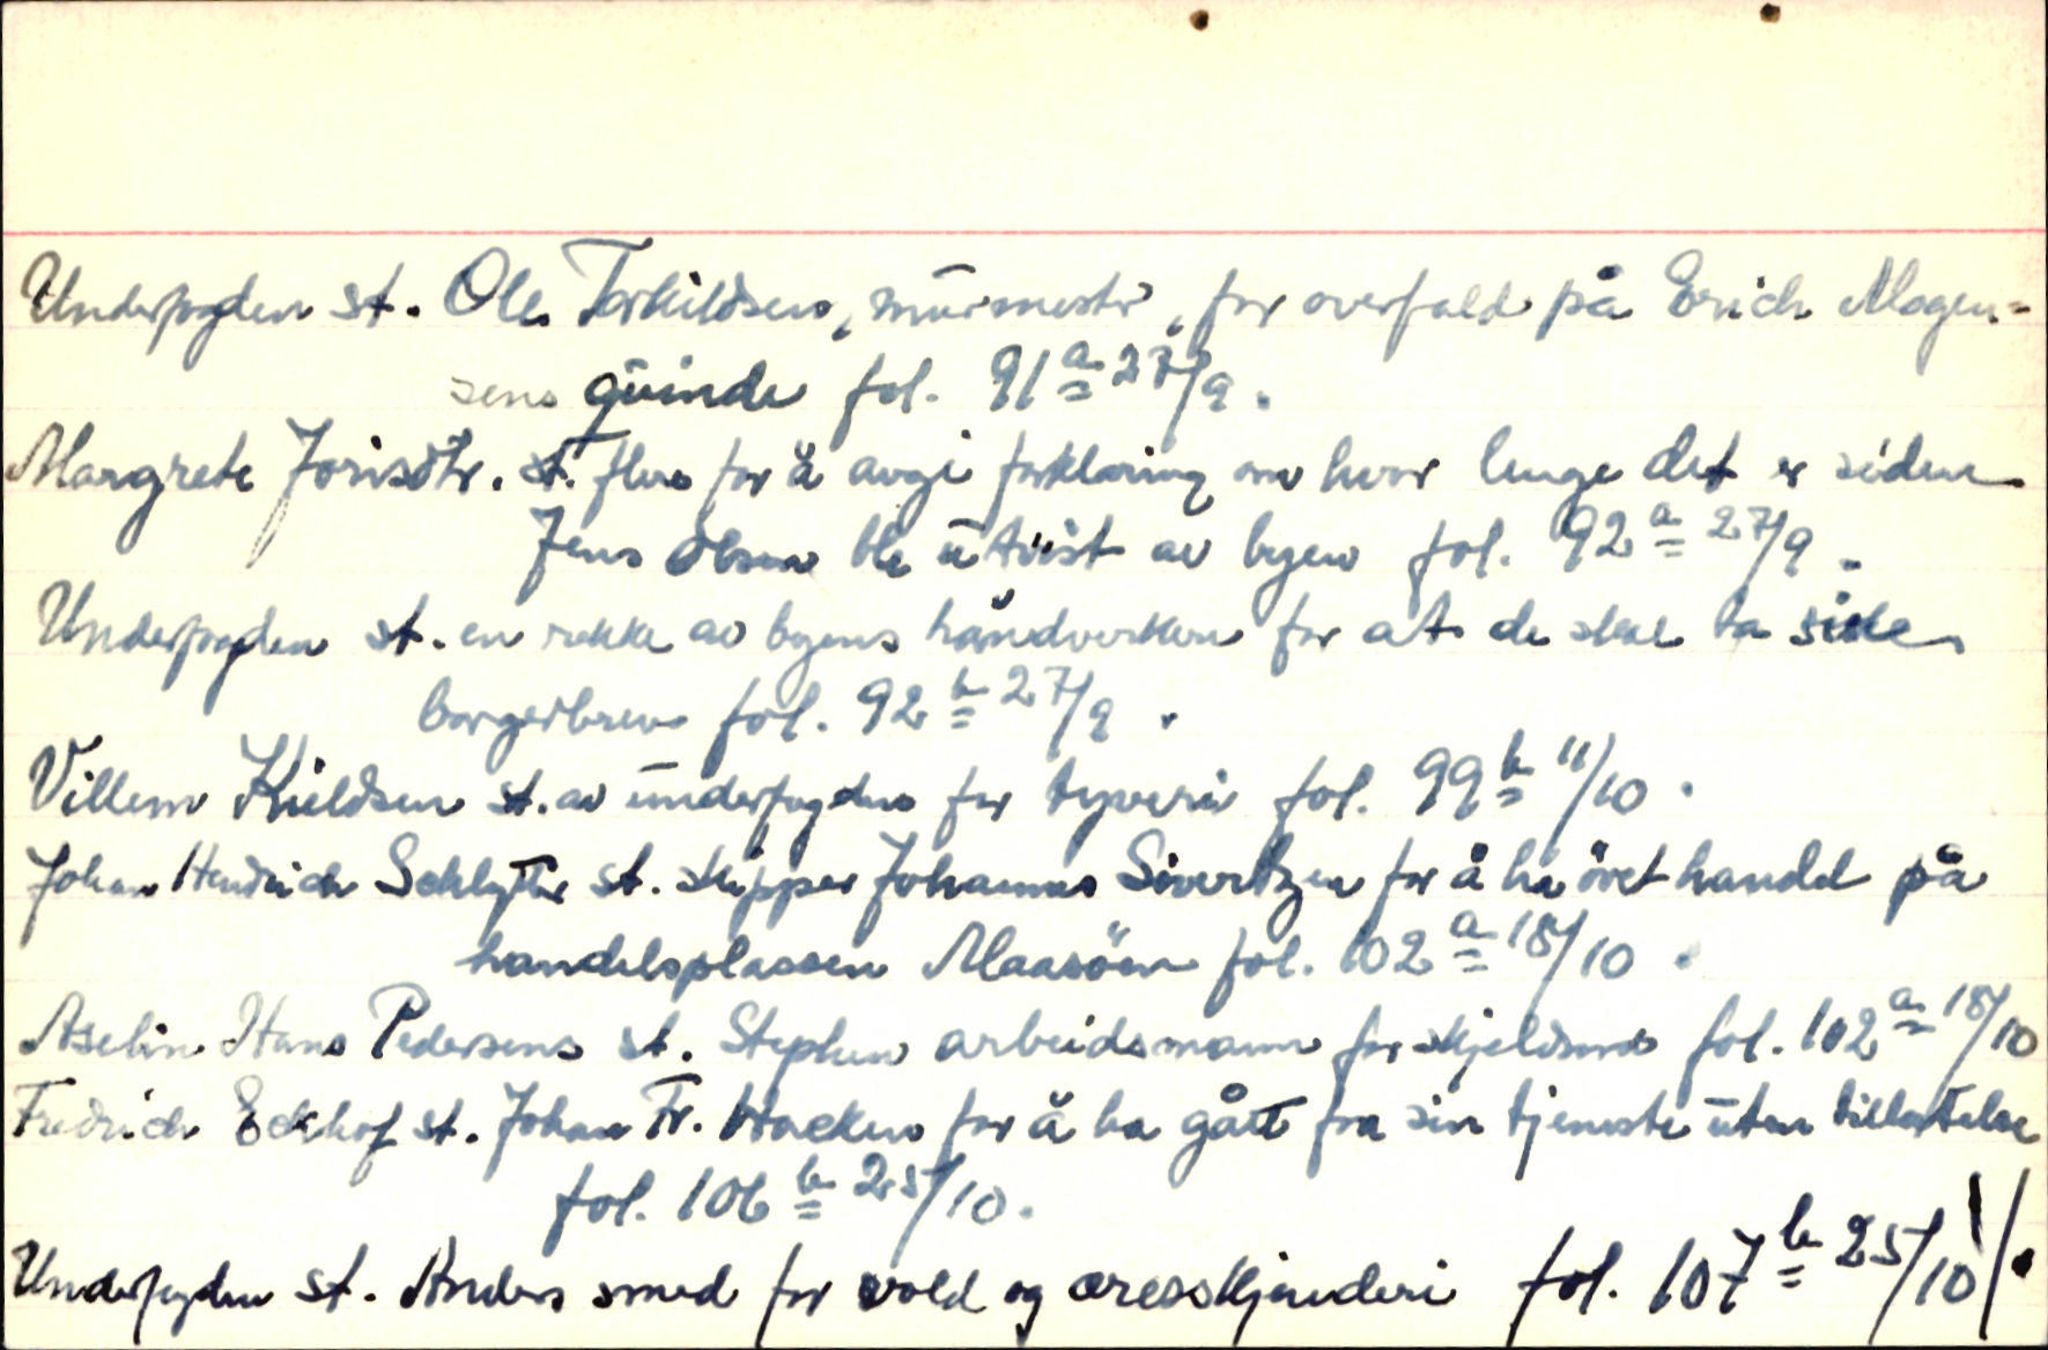 Underfogden st. Ole Torkildsen, mūrmester, for overfald på Erich Mogen=
sens qūinde fol. 91 a 27/9.
Margrete Jonsdtr. st. flere for å avgi forklaring om hvor lenge det er siden
Jens Olsen ble ūtvist av byen fol. 92 a 27/9.
Underfogden st. en rekke av byens håndverkere for at de skal ta sitt
borgerbrev fol. 92 b 27/9.
Villem Kieldsen st. av ūnderfogden for tyveri fol. 99 b 11/10.
Johan Hendrich Schlyter st. skipper Johannes Sivertzen for å ha övet handel på
handelsplassen Maasöen fol. 102 a 18/10.
Hans Pedersens st. Stephen arbeidsmann for skjeldsord fol. 102 a 18/10
Fredrich Eckhof st. Johan Fr. Hocken for å ha gått fra sin tjeneste ūten tillatelse
fol. 106 b 25/10.
Underfogden st. Anders smed for vold og æresskjenderi fol. 107 b 25/10.